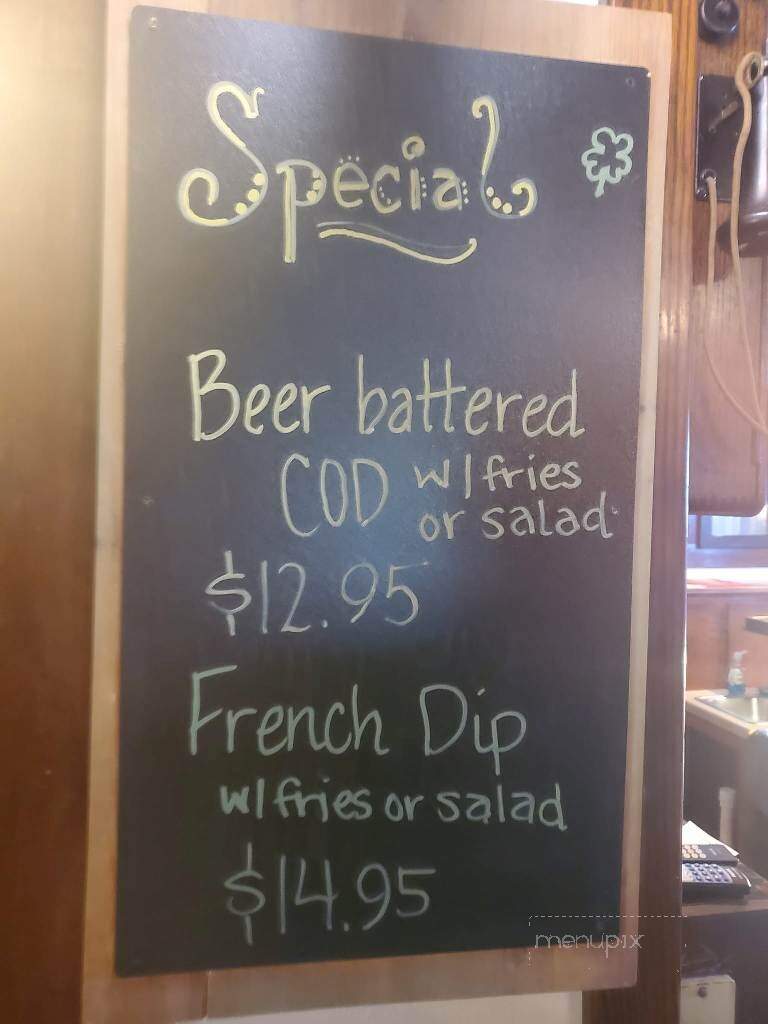 Special
Beer battered
COD w/fries
or salad
$12.95
French Dip
w/fries or salad
$14.95
menupix